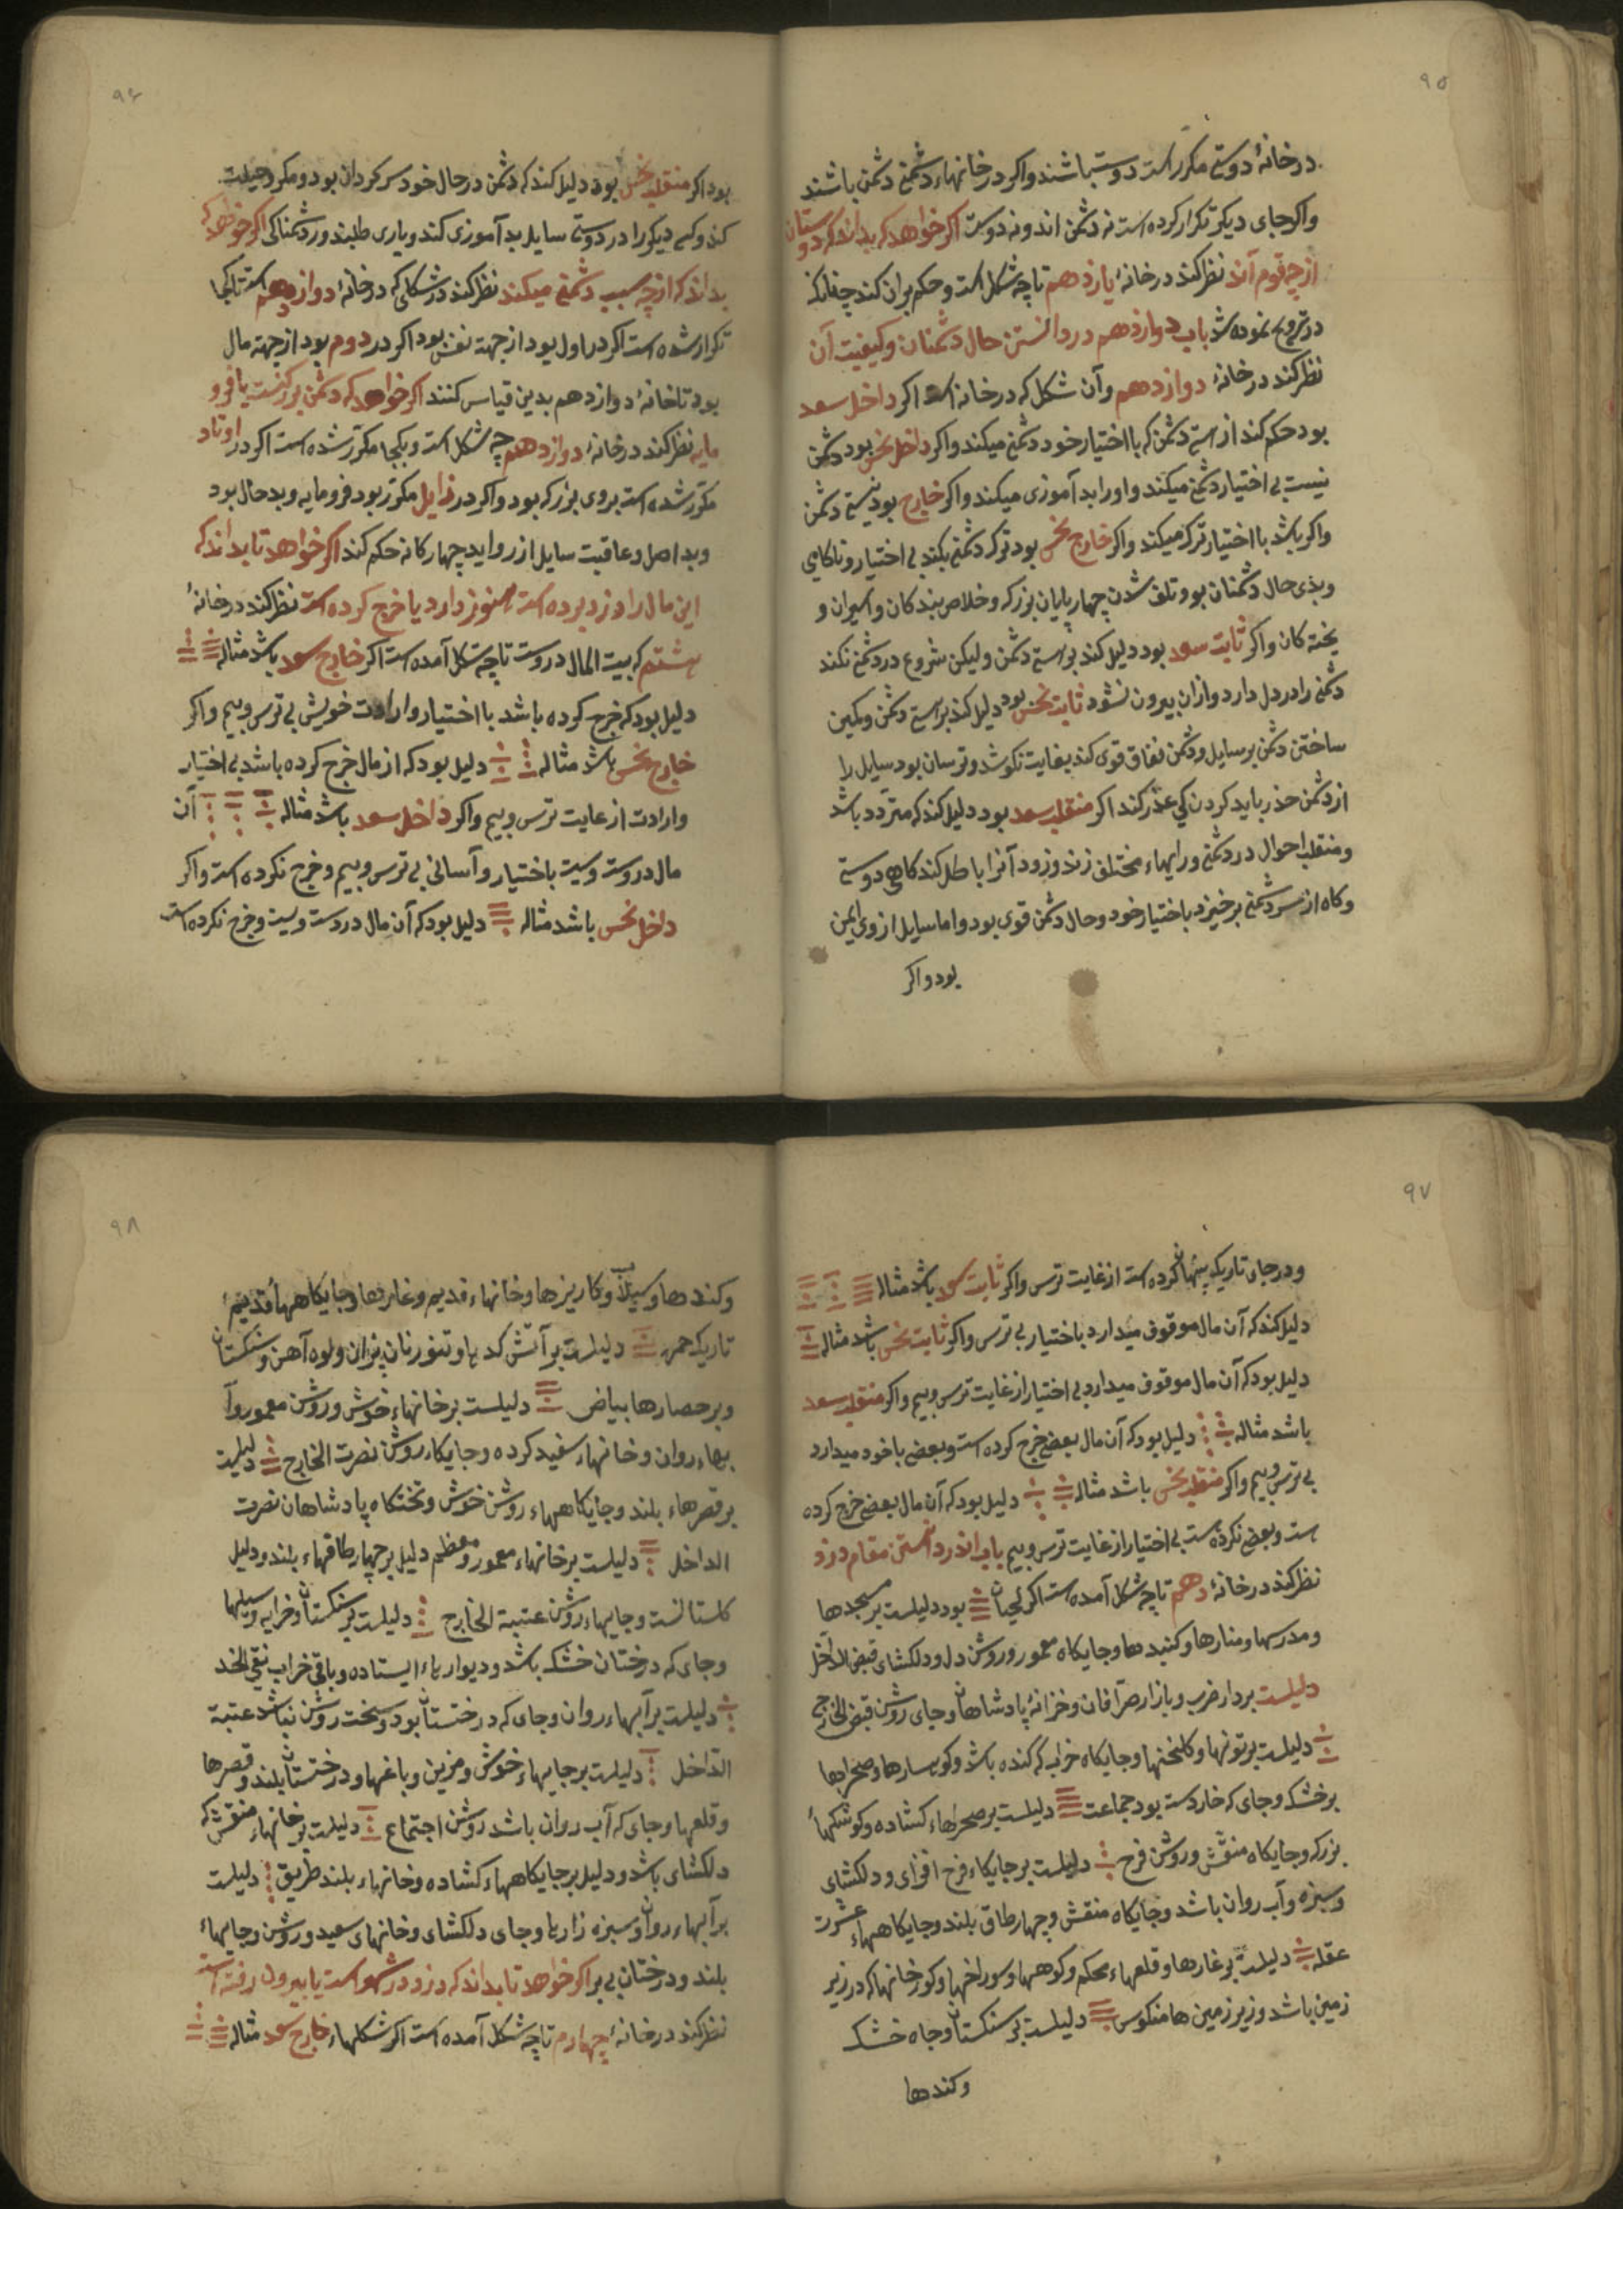 ۹۵
درخانهٔ دوستی مکرر است دوست باشند واکر در خانهاء دشمنی دشمن باشند
واکر جای دیکر تکرار کرده است نه دشمن اند ونه دوست اکر خواهد که بداند که دوستان
از چه قوم آند نظر کند در خانهٔ یازدهم تا چه شکل است وحکم بران کند چنانکه
در تزویج نموده شد باب دوازدهم در دانستن حال دشمنان وکیفیت آن
نظر کند در خانهٔ دوازدهم وآن شکل که در خانه است اکر داخل سعد
بود حکم کند از هستی دشمن که با اختیار خود دشمنی میکند واکر داخل نحس بود دشمن
نیست بی اختیار دشمنی میکند واورا بد آموزی میکند واکر خارج بود نیستی دشمن
واکر باشد با اختیار ترک میکند واکر خارج نحس بود ترک دشمنی بکند بی اختیار وناکامی
وبدی حال دشمنان بود وتلف شدن چهارپایان بزرک وخلاص بندکان واسیران و
یخته کان واکر ثابت سعد بود دلیل کند بر هستی دشمن ولیکن شروع در دشمنی نکند
دشمنی را در دل دارد وازان بیرون نشود ثابت نحس بود دلیل کند بر هستی دشمن وکمین
ساختن دشمن بر سایل ودشمن نفاق قوی کند بغایت نکوشد وترسان بود سایل را
از دشمن حذر باید کردن کی غدر کند اکر منقلب سعد بود دلیل کند که متردد باشد
ومنقلب احوال در دشمنی ورایهاء مختلف زند وزود آنرا باطل کند کاهی دوستی
وکاه از سر دشمنی برخیزد باختیار خود وحال دشمن قوی بود واما سایل ازوی ایمن
بود واکر
۹۶
بود اکر منقلب نحس بود دلیل کند که دشمن در حال خود سرکردان بود ومکر وحیلت
کند وکسی دیکر را در دوستی سایل بد آموزی کند ویاری طلبد ور دشمناکی اکر خواهد که
بداند که از چه سبب دشمنی میکند نظر کند در شکلی که در خانهٔ دوازدهم است تا کجا
تکرار شده است اکر در اول بود از جهة نفس بود اکر در دوم بود از جهة مال
بود تا خانهٔ دوازدهم بدین قیاس کنند اکر خواهد که دشمن بزرکست یا فرو
مایه نظر کند در خانهٔ دوازدهم چه شکل است وبکجا مکرر شده است اکر در اوتاد
مکرر شده است بروی بزرک بود واکر در زایل مکرر بود فرومایه وبد حال بود
وبد اصل وعاقبت سایل از زواید چهارکانه حکم کند اکر خواهد تا بداند که
این مال را دزد برده است هنوز دارد یا خرج کرده است نظر کند در خانهٔ
هشتم که بیت المال دروست تا چه شکل آمده است اکر خارج سعد باشد مثاله
دلیل بود که خرج کرده باشد با اختیار وارادت خویش بی ترس وبیم واکر
خارج نحس باشد مثاله دلیل بود که از مال خرج کرده باشد بی اختیار
وارادت از غایت ترس وبیم واکر داخل سعد باشد مثاله آن
مال دروست وست باختیار وآسانی بی ترس وبیم وخرج نکرده است واکر
داخل نحس باشد مثاله دلیل بود که آن مال دردست ویست وخرج نکرده است
۹۷
ودر جای تاریک پنهان کرده است از غایت ترس واکر ثابت سعد باشد مثاله
دلیل کند که آن مال موقوف میدارد باختیار بی ترس واکر ثابت نحس باشد مثاله
دلیل بود که آن مال موقوف میدارد بی اختیار از غایت ترس وبیم واکر منقلب سعد
باشد مثاله دلیل بود که آن مال بعضی خرج کرده است وبعضی با خود میدارد
بی ترس وبیم واکر منقلب نحس باشد مثاله دلیل بود که آن مال بعضی خرج کرده
ست وبعضی نکرده ست بی اختیار از غایت ترس وبیم باب اندر دانستن مقام دزد
نظر کند در خانهٔ دهم تا چه شکل آمده است اکر لحیان بود دلیلست بر مسجدها
ومدرسها ومنارها وکنبدها وجایکاه معمور وروشن دل ودلکشای قبض الداخل
دلیلست بر دار ضرب وبازار صرافان وخزانهٔ پادشاهان وجای روشن قبض الخارج
دلیلست بر تونها وکلخنها وجایکاه خراب که کنده باشد وکوهسارها وصحراها
برخشک وجای که خارست بود جماعت دلیلست بر صحراهاء کشاده وکوشکهاء
بزرک وجایکاه منقش وروشن فرح دلیلست بر جایکاء فرح افزای ودلکشای
وسبزه وآب روان باشد وجایکاه منقش وچهارطاق بلند وجایکاههاء عشرت
عقله دلیلست بر غارها وقلعهاء محکم وکوهها وسوراخها وکورخانها که در زیر
زمین باشد وزیر زمین ها منکوس دلیلست بر سنکستان وجاه خشک
وکندها
۹۸
وکندها وسیلاب وکاریزها وخانهاء قدیم وغارها وجایکاههاء قدیم
تاریک حمره دلیلست بر آتش کدها وتنور نان پزان وکوه آهن وسنکستان
وبر حصارها بیاض دلیلست بر خانهاء خوش وروشن معمور وآ
بهاء روان وخانهاء سفید کرده وجایکاء روشن نصرت الخارج دلیلست
بر قصرهاء بلند وجایکاههاء روشن خوش وتختکاه پادشاهان نصرت
الداخل دلیلست بر خانهاء معمور ومعظم دلیل بر چهارطاقهاء بلند ودلیل
کلستانست وجایهاء روشن عتبة الخارج دلیلست بر سنکستان وخرابه وسیلها
وجای که درختان خشک باشد ودیوارهاء ایستاده وباقی خراب نقی الخد
دلیلست بر آبهاء روان وجای که درختستان بود وسخت روشن نباشد عتبة
الداخل دلیلست بر جایهاء خوش ومزین وباغها ودرختستان بلند وقصرها
وقلعها وجای که آب روان باشد روشن اجتماع دلیلست بر خانهاء منقش که
دلکشای باشد ودلیل بر جایکاههاء کشاده وخانهاء بلند طریق دلیلست
بر آبهاء روان وسبزه زارها وجای دلکشای وخانهای سعید وروشن وجایهاء
بلند ودرختان بی بر اکر خواهد تا بداند که دزد در شهر است یا بیرون رفته است
نظر کند در خانهٔ چهارم تا چه شکل آمده است اکر شکلهاء خارج سعد مثاله